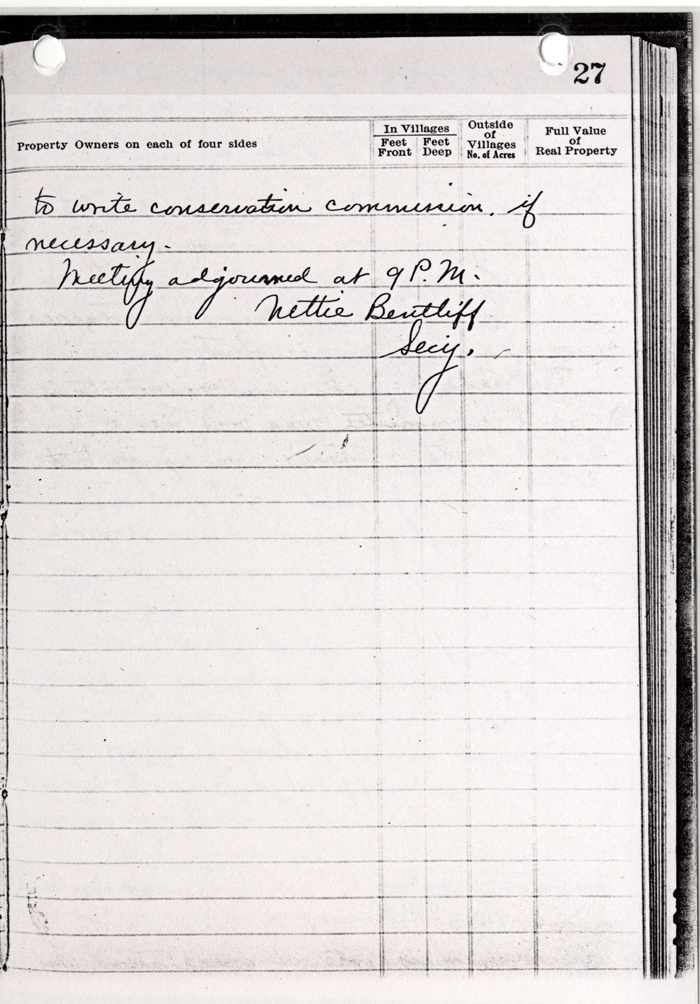 27
Property Owners on each of four sides
In Villages
Feet Front
Feet Deep
Outside of Villages No. of Acres
Full Value of Real Property
to write conservation commission, if
necessary.
Meeting adjourned at 9 P.M.
Nettie Bentliff
Secy.